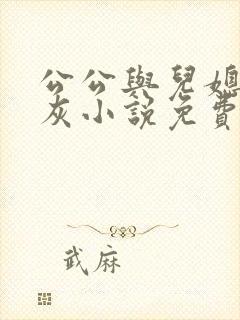 公公與兒媳
灰小說免費
武麻